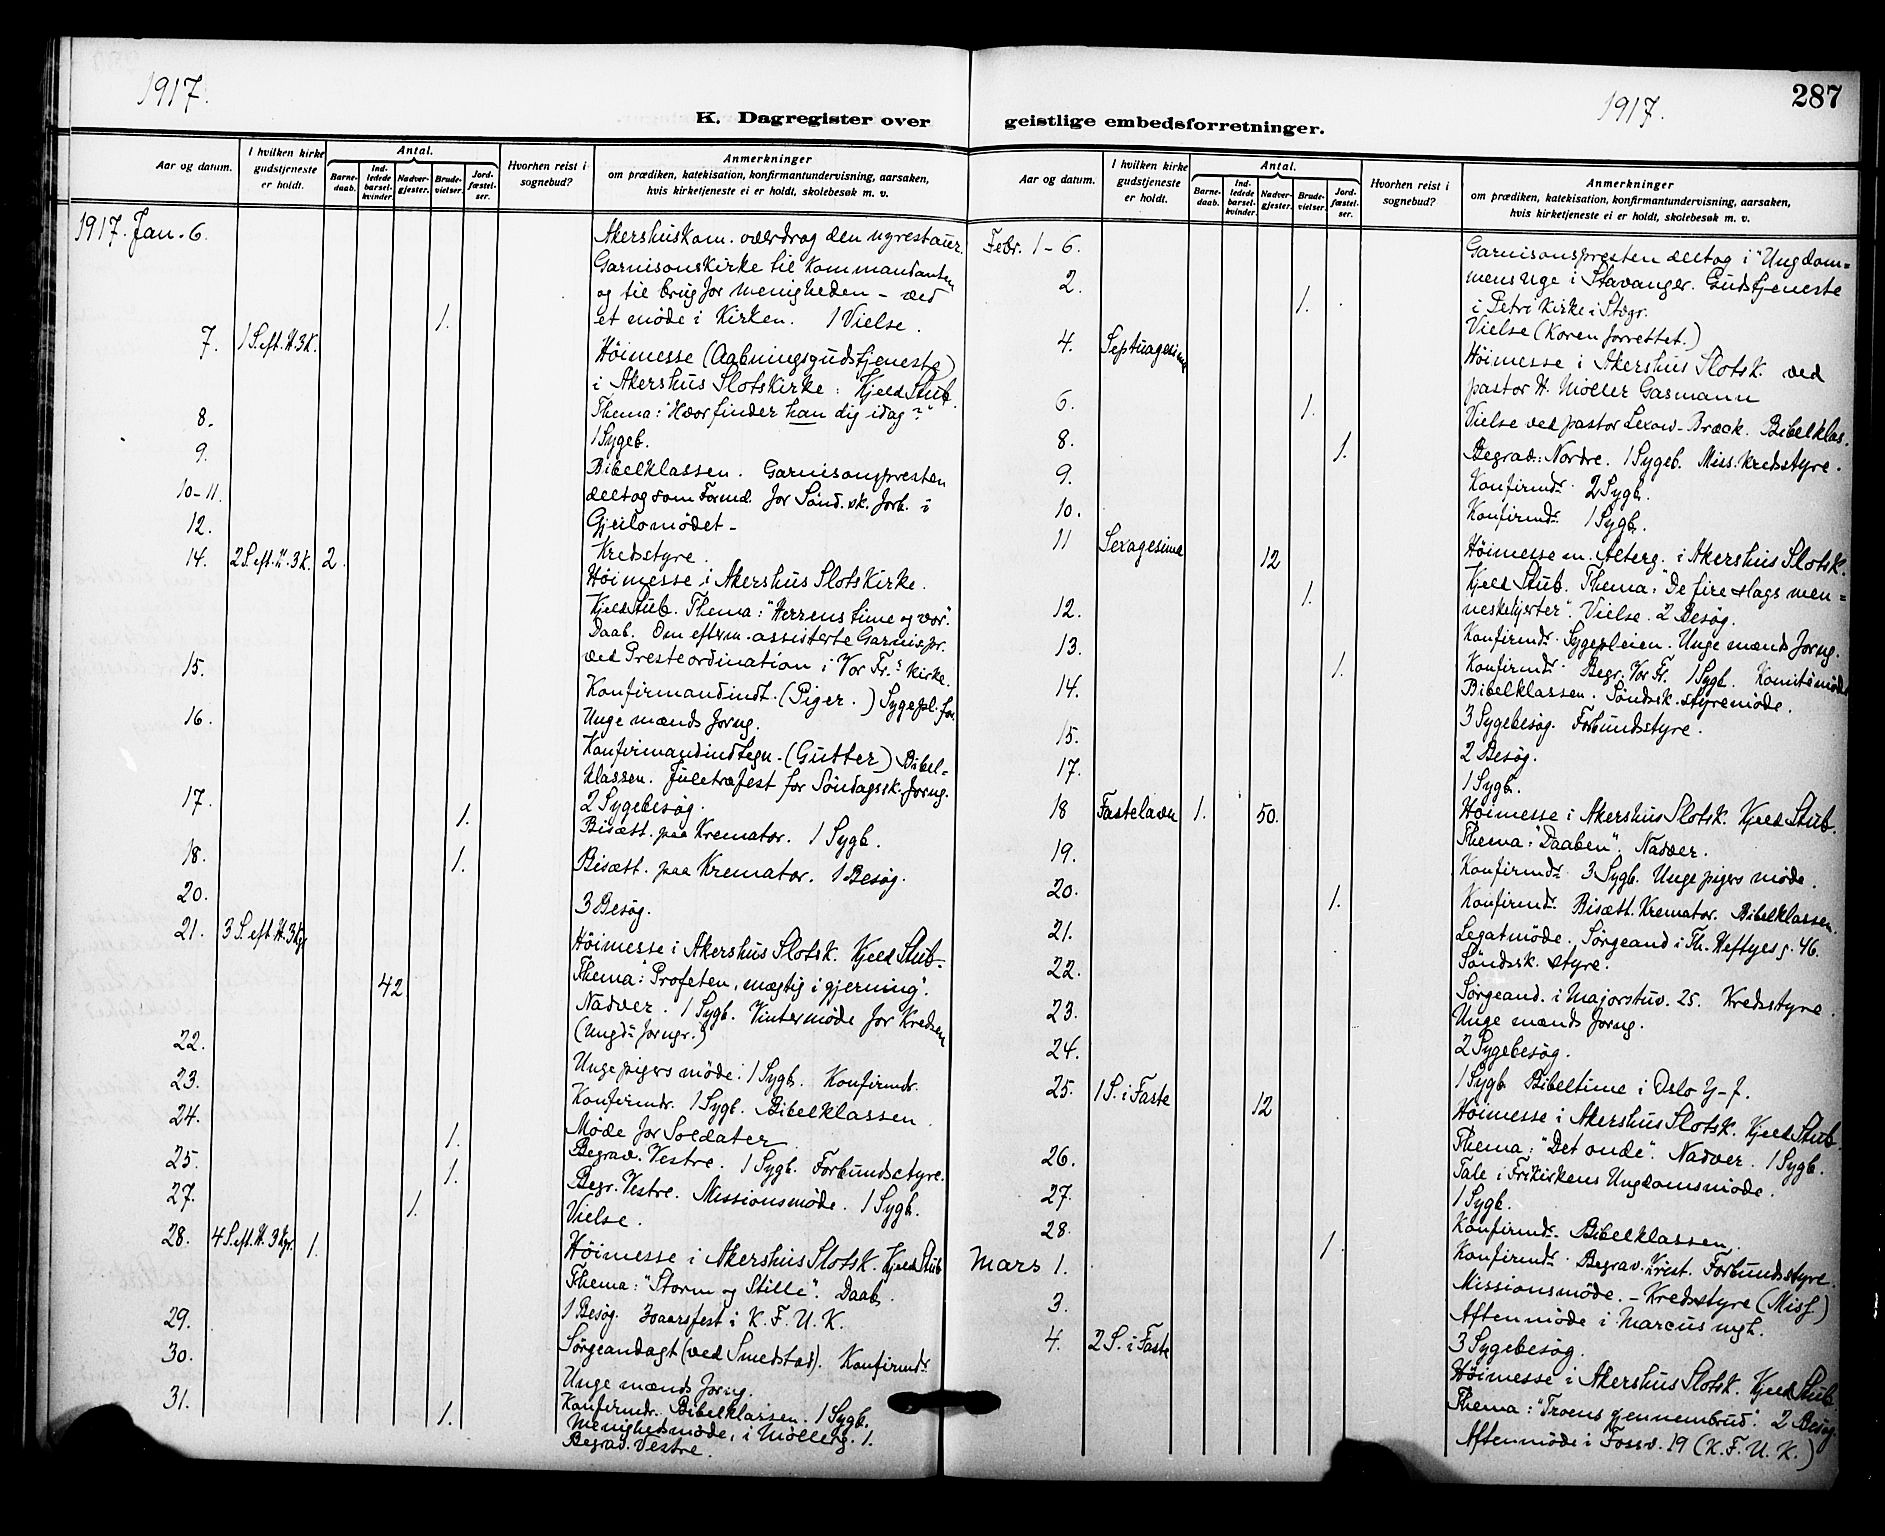 1917.
K. Dagregister over
Aar og datum.
I hvilken kirke gudstjeneste er holdt.
Antal.
Barne-daab.
Ind-ledede barsel-kvinder.
Nadver-gjester.
Brude-vielser.
Jord-fæstel-ser.
Hvorhen reist i sognebud?
Anmerkninger
om prædiken, katekisation, konfirmantundervisning, aarsaken,
hvis kirketjeneste ei er holdt, skolebesøk m. v.
1917. Jan. 6.
Akershus kom. overdrog den nyrestaur.
Garnisonskirke til Kommandanten
og til brug for menigheden - ved
et møde i Kirken. 1 Vielse. 1.
7. 1 S. eft. H. 3 K.
Høimesse (Aabningsgudstjeneste)
i Akershus Slotskirke: Kjeld Stub.
Thema: "Hvor finder han dig idag?"
8. 1 Sygeb.
9. Bibelklassen. Garnisonspresten
10-11. deltog som Formd. for Sønd.sk. forb. i
Gjeilomødet -
12. Kredsstyre.
14. 2 S. eft. H. 3 K. 2.
Høimesse i Akershus Slotskirke.
Kjeld Stub. Thema: "Herrens time og vor".
Daab. Om efterm. assisterte Garnis.pr.
ved Presteordination i Vor Fr.s Kirke.
15. Konfirmandindt. (Piger.) Sygepl. for.
Unge mænds forng.
16. Konfirmandindtegn. (Gutter) Bibel-
klassen. Juletræfest for Søndagssk. forng.
17. 2 Sygebesøg. 1.
Bisætt. paa Kremator. 1 Sygb.
18. 1. Bisætt. paa Kremator. 1 Besøg.
20. 3 Besøg.
21. 3 S. eft. H. 3 Kgr
Høimesse i Akershus Slotsk. Kjeld Stub.
42 Thema: "Profeten, mægtig i gjerning".
Nadver. 1 Sygb. Vintermøde for Kredsen
(Ungd. forngr.)
22. Unge pigers møde: 1 Sygb. Konfirmdr.
23. Konfirmdr. 1 Sygb. Bibelklassen.
24. Møde for Soldater 1.
Begrav. Vestre. 1 Sygb. Forbundsstyre.
25. 1. Begr. Vestre. Missionsmøde. 1 Sygb.
27. 1. Vielse.
28. 4 S. eft. H. 3 Kgr. 1.
Høimesse i Akershus Slotsk. Kjeld Stub
Thema: "Storm og Stille". Daab.
1 Besøg. 30 aarsfest i K. F. U. K.
29. Sørgeandagt (ved Smedstad). Konfirmdr.
30. Unge mænds forng.
Konfirmdr. Bibelklassen. 1 Sygb.
31. 1. Menighedsmøde, i Møllerg. 1.
Begrav. Vestre.
1917.
287
geistlige embedsforretninger.
Aar og datum.
I hvilken kirke gudstjeneste er holdt.
Antal.
Barne-daab.
Ind-ledede barsel-kvinder.
Nadver-gjester.
Brude-vielser.
Jord-fæstel-ser.
Hvorhen reist i sognebud?
Anmerkninger
om prædiken, katekisation, konfirmantundervisning, aarsaken,
hvis kirketjeneste ei er holdt, skolebesøk m. v.
Febr. 1-6.
Garnisonspresten deltog i "Ungdom=
mens uge i Stavanger. Gudstjeneste
i Petri Kirke i Stvgr.
2. 1. Vielse (Koren forrettet.)
4. Septuagesima
Høimesse i Akershus Slotsk. ved
pastor H. Møller Gasmann
6. 1. Vielse ved pastor Lexow-Bræck. Bibelklas.
8. 1. Begrav: Nordre. 1 Sygeb. Miss. kredsstyre.
9. Konfirmdr. 2 Sygb.
10. Konfirmdr. 1 Sygb.
11 Sexagesima 12
Høimesse m. Alterg. i Akershus Slotsk.
Kjeld Stub. Thema: "De fire slags men=
neskehjerter". Vielse. 2 Besøg. 1.
12. Konfirmdr. Sygepleien. Unge mænds forng.
13. 1. Konfirmdr. Begr. Vor Fr. 1 Sygb. Komitémøde
Bibelklassen. Søndsk. styremøde.
14. 3 Sygebesøg. Forbundsstyre.
15. 2 Besøg.
17. 1 Sygb.
18 Fastelavn 1. 50.
Høimesse i Akershus Slotsk. Kjeld Stub.
Thema: "Daaben". Nadver.
19. Konfirmdr. 3 Sygb. Unge pigers møde.
20. 1. Konfirmdr. Bisætt. Kremator. Bibelklassen.
21. Legatmøde. Sørgeand i Th. Heftyes g. 46.
Søndssk. styre.
22. Sørgeand. i Majorstuv. 25. Kredsstyre.
23. Unge mænds forng.
24. 2 Sygebesøg.
1 Sygb. Bibeltime i Oslo Y-J.
25. 1 S. i Faste 12
Høimesse i Akershus Slotsk. Kjeld Stub
Thema: "Det onde". Nadver. 1 Sygb.
26. Tale i Frikirkens Ungdomsmøde.
27. 1 Sygb.
Konfirmdr. Bibelklassen.
28. 1. Konfirmdr. Begrav. Krist. Forbundsstyre.
Mars 1. Missionsmøde. - Kredsstyre (Miss.)
Aftenmøde i Marcus mgh.
3. 3 Sygebesøg.
4. 2 S. i Faste
Høimesse i Akershus Slotsk. Kjeld Stub.
Thema: "Troens gjennembrud". 2 Besøg.
Aftenmøde i Fossv. 19 (K. F. U. K.)